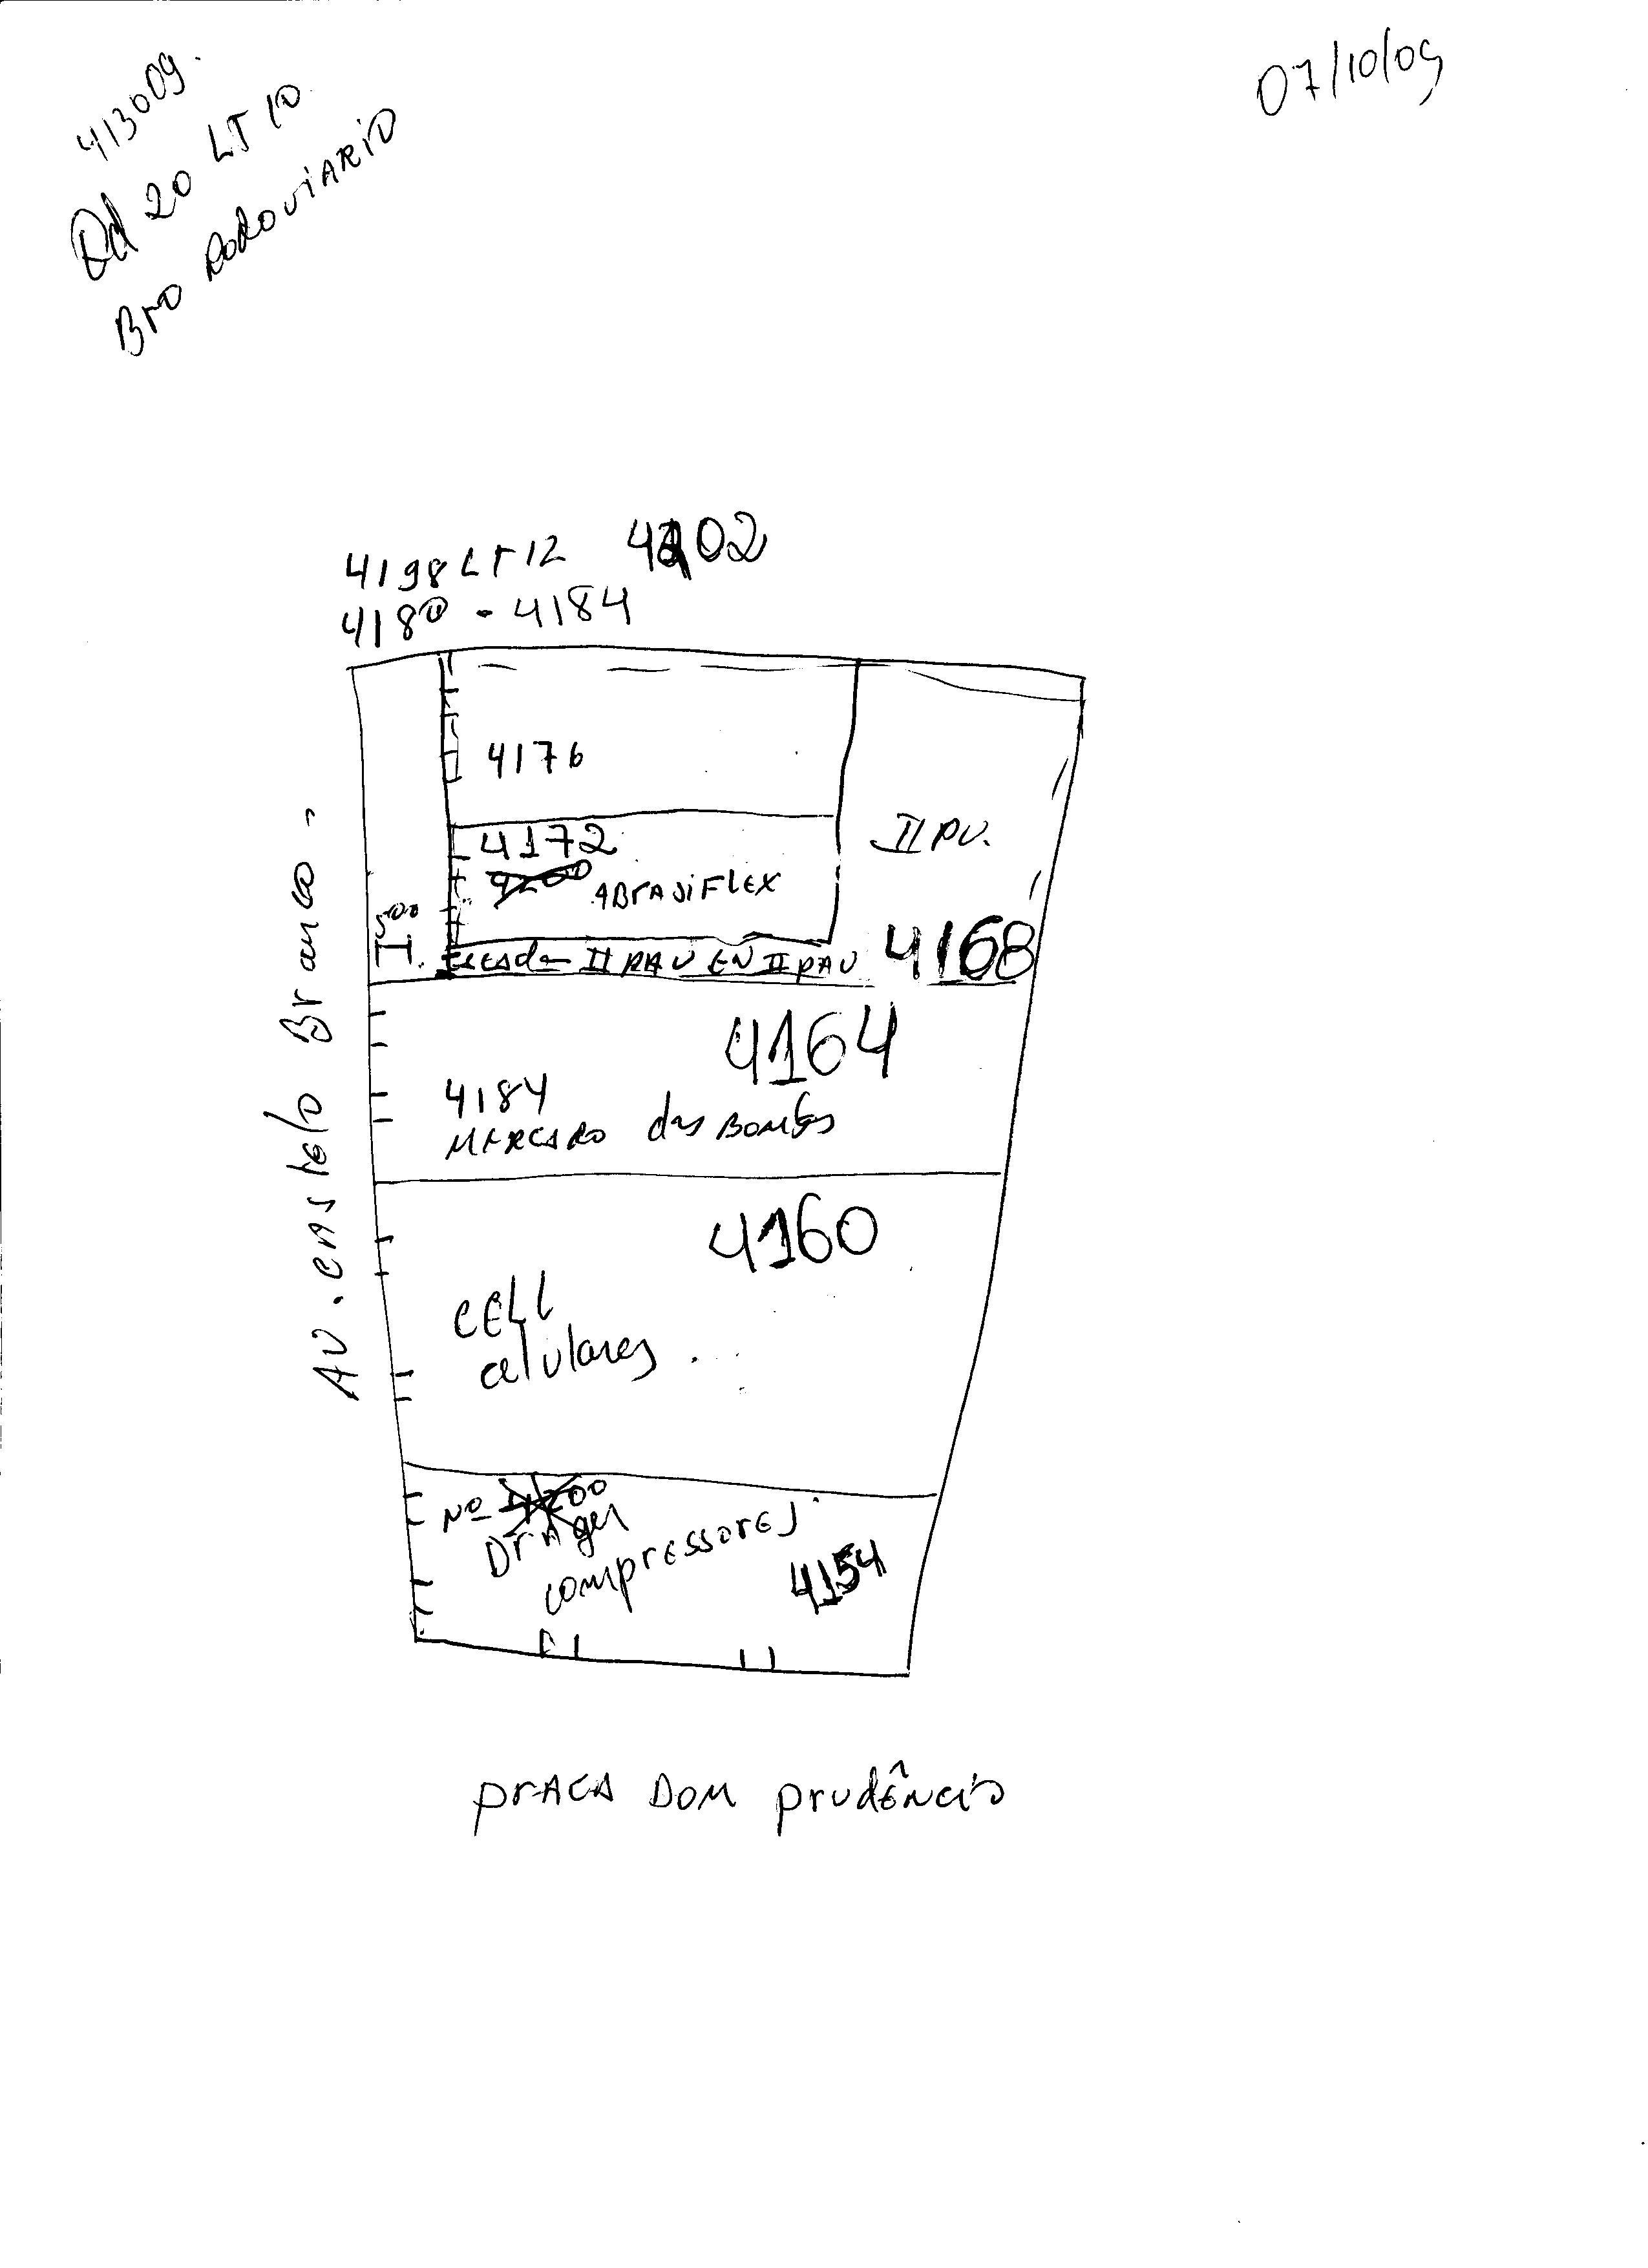 07/10/09
413009.
Qd 20 LT 10
Bro RodoviARiO
4198 LT 12 4202
4180 - 4184
4176
4172
ABrAsiFLEX
II PV.
500
EscAda II PAV EN II PAV 4168
4164
4184
MERCADO das BOMBAs
4160
CELL
celulares
Nº 4200
DrAger
compressorEs
4154
AV. CAstelo Branco
prACA DOM prudÊNCiO